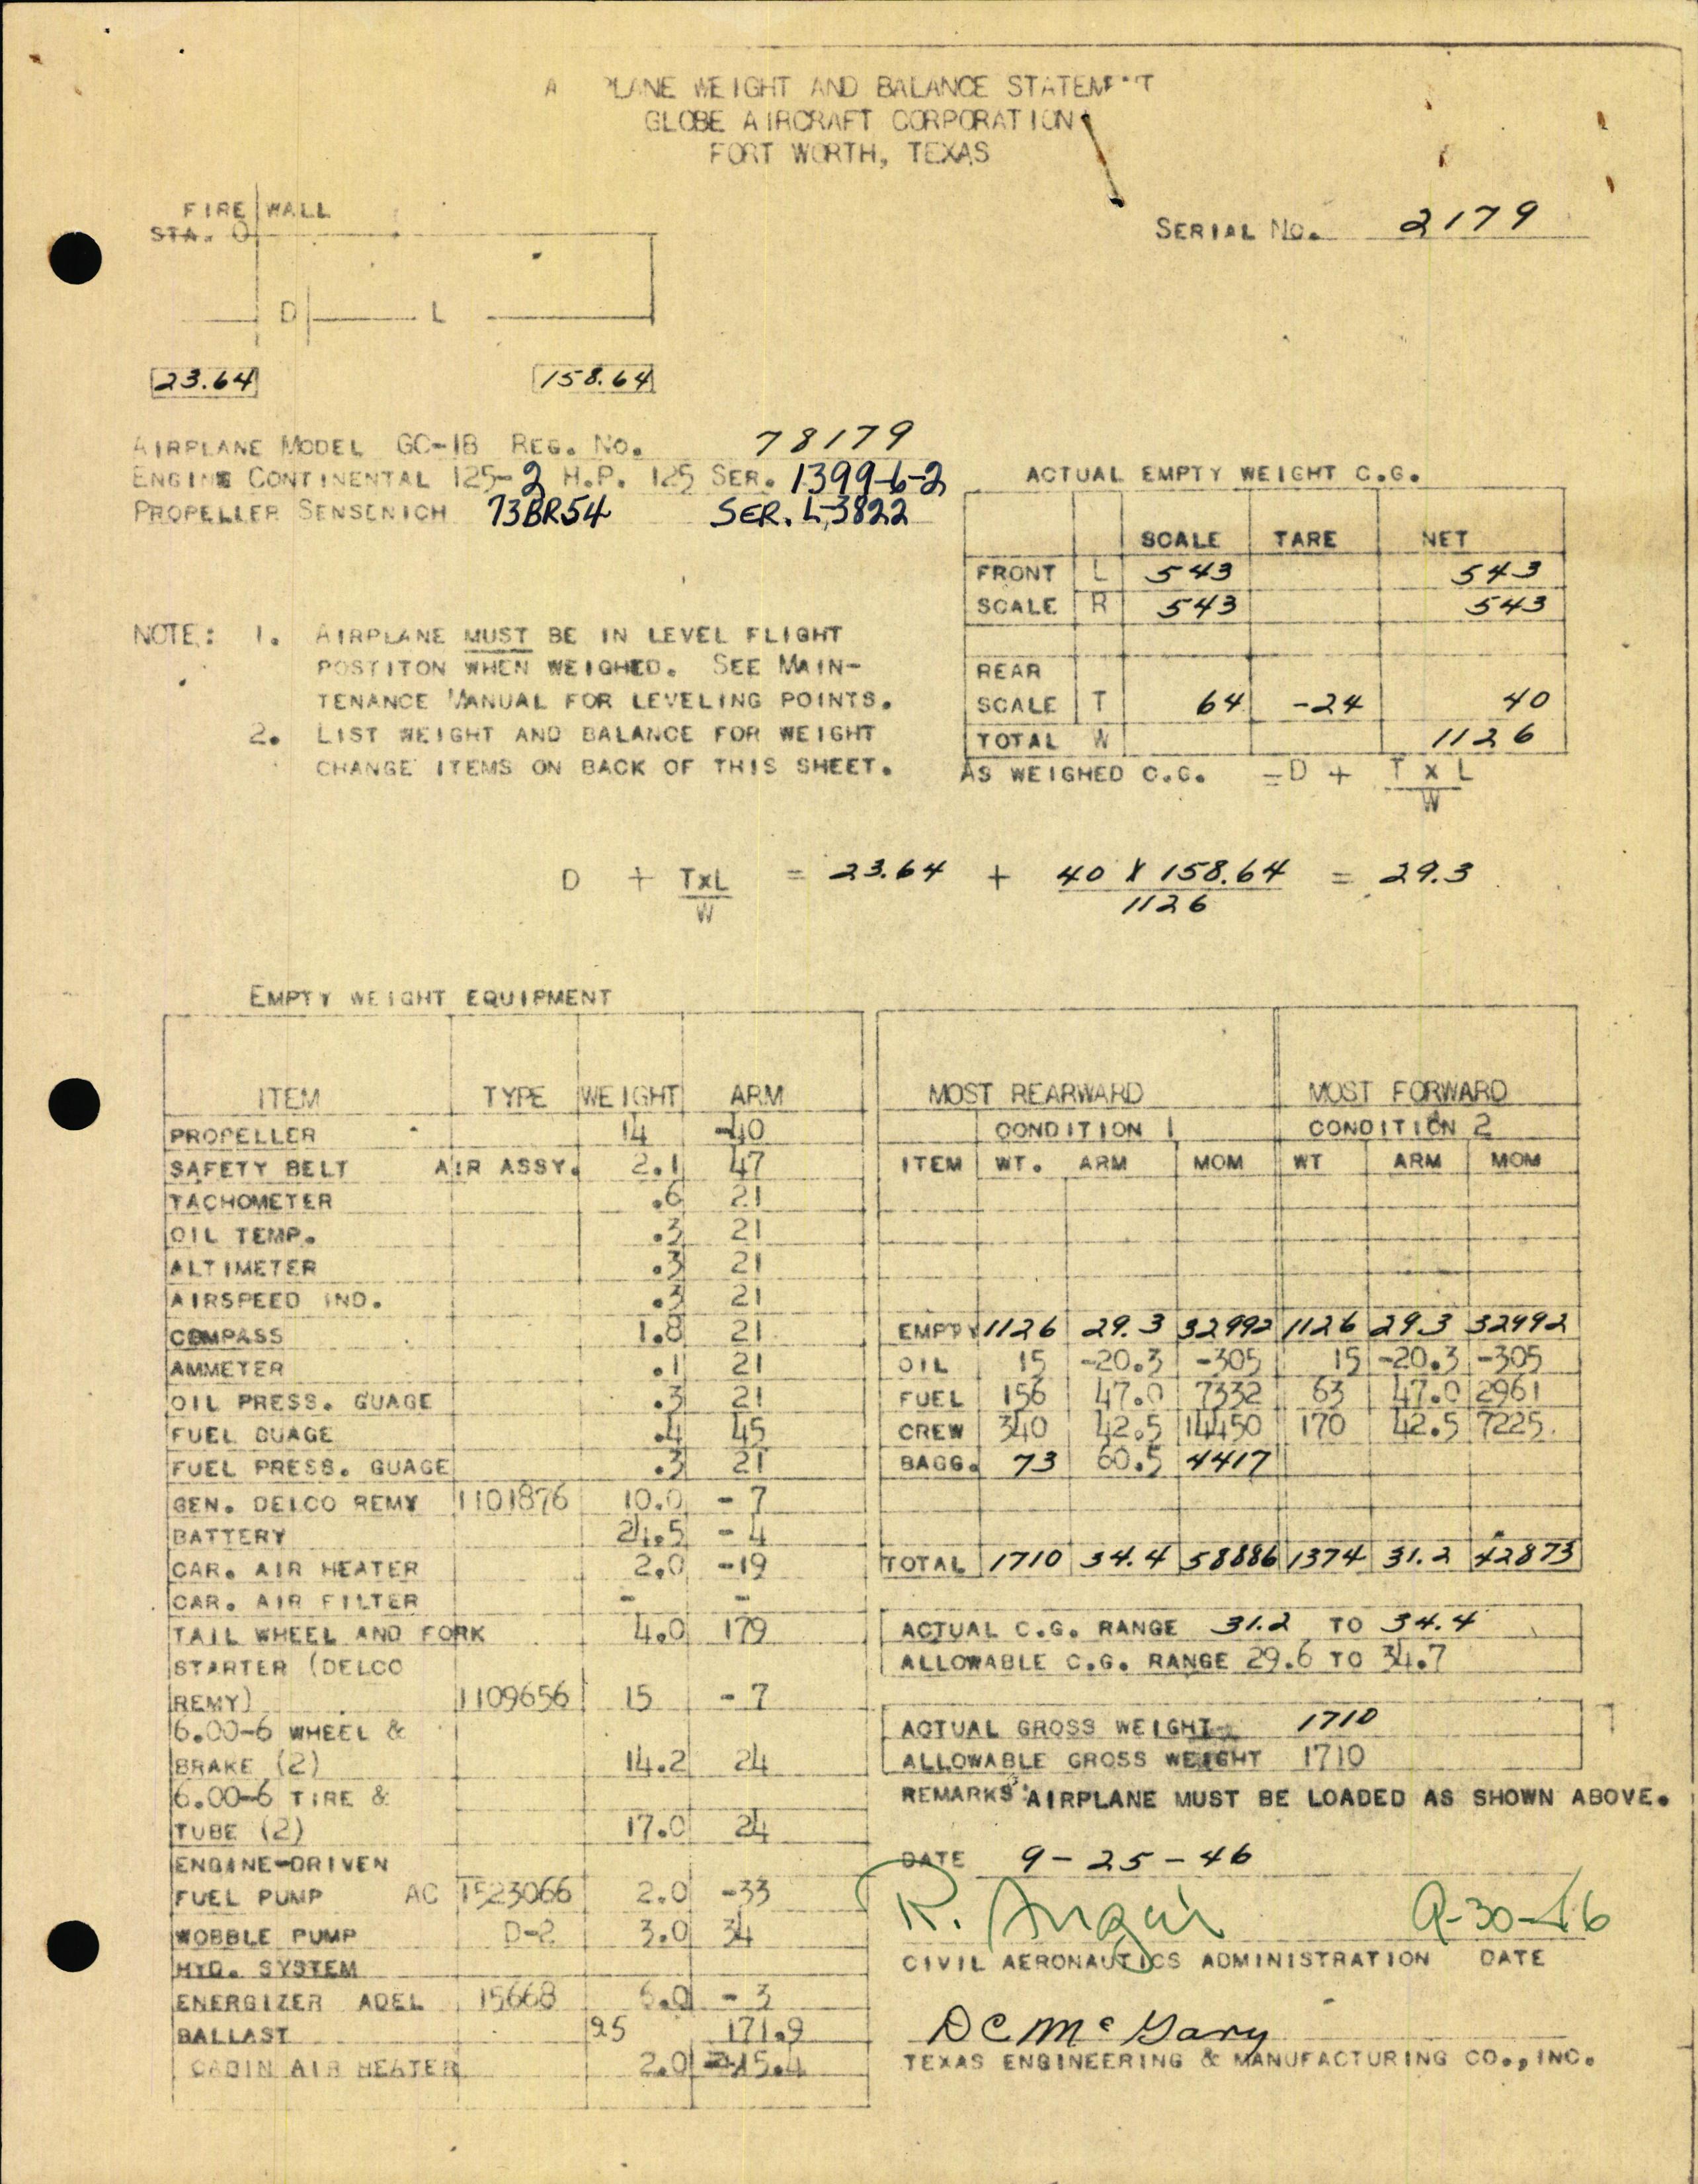 A PLANE WEIGHT AND BALANCE STATEMENT
GLOBE AIRCRAFT CORPORATION
FORT WORTH, TEXAS
FIRE WALL
STA. 0
SERIAL NO. 2179
D L
23.64 158.64
AIRPLANE MODEL GC-1B REG. NO. 78179
ENGINE CONTINENTAL 125-2 H.P. 125 SER. 1399-6-2
PROPELLER SENSENICH 73BR54 SER. L-3822
ACTUAL EMPTY WEIGHT C.G.
SCALE TARE NET
FRONT L 543 543
SCALE R 543 543
REAR
SCALE T 64 -24 40
TOTAL W 1126
AS WEIGHED C.G. = D + T x L
W
NOTE: 1. AIRPLANE MUST BE IN LEVEL FLIGHT
POSTITON WHEN WEIGHED. SEE MAIN-
TENANCE MANUAL FOR LEVELING POINTS.
2. LIST WEIGHT AND BALANCE FOR WEIGHT
CHANGE ITEMS ON BACK OF THIS SHEET.
D + TxL = 23.64 + 40 X 158.64 = 29.3
W 1126
EMPTY WEIGHT EQUIPMENT
ITEM TYPE WEIGHT ARM
PROPELLER 14 -40
SAFETY BELT AIR ASSY. 2.1 47
TACHOMETER .6 21
OIL TEMP. .3 21
ALTIMETER .3 21
AIRSPEED IND. .3 21
COMPASS 1.8 21
AMMETER .1 21
OIL PRESS. GUAGE .3 21
FUEL GUAGE .4 45
FUEL PRESS. GUAGE .3 21
GEN. DELCO REMY 1101876 10.0 - 7
BATTERY 24.5 - 4
CAR. AIR HEATER 2.0 -19
CAR. AIR FILTER - -
TAIL WHEEL AND FORK 4.0 179
STARTER (DELCO
REMY) 1109656 15 - 7
6.00-6 WHEEL &
BRAKE (2) 14.2 24
6.00-6 TIRE &
TUBE (2) 17.0 24
ENGINE-DRIVEN
FUEL PUMP AC 1523066 2.0 -33
WOBBLE PUMP D-2 3.0 34
HYD. SYSTEM
ENERGIZER ADEL 15668 6.0 - 3
BALLAST 25 171.9
CABIN AIR HEATER 2.0 -15.4
MOST REARWARD MOST FORWARD
CONDITION 1 CONDITION 2
ITEM WT. ARM MOM WT ARM MOM
EMPTY 1126 29.3 32992 1126 29.3 32992
OIL 15 -20.3 -305 15 -20.3 -305
FUEL 156 47.0 7332 63 47.0 2961
CREW 340 42.5 14450 170 42.5 7225
BAGG. 73 60.5 4417
TOTAL 1710 34.4 58886 1374 31.2 42873
ACTUAL C.G. RANGE 31.2 TO 34.4
ALLOWABLE C.G. RANGE 29.6 TO 34.7
ACTUAL GROSS WEIGHT 1710
ALLOWABLE GROSS WEIGHT 1710
REMARKS: AIRPLANE MUST BE LOADED AS SHOWN ABOVE.
DATE 9-25-46
9-30-46
CIVIL AERONAUTICS ADMINISTRATION DATE
DC McGary
TEXAS ENGINEERING & MANUFACTURING CO., INC.